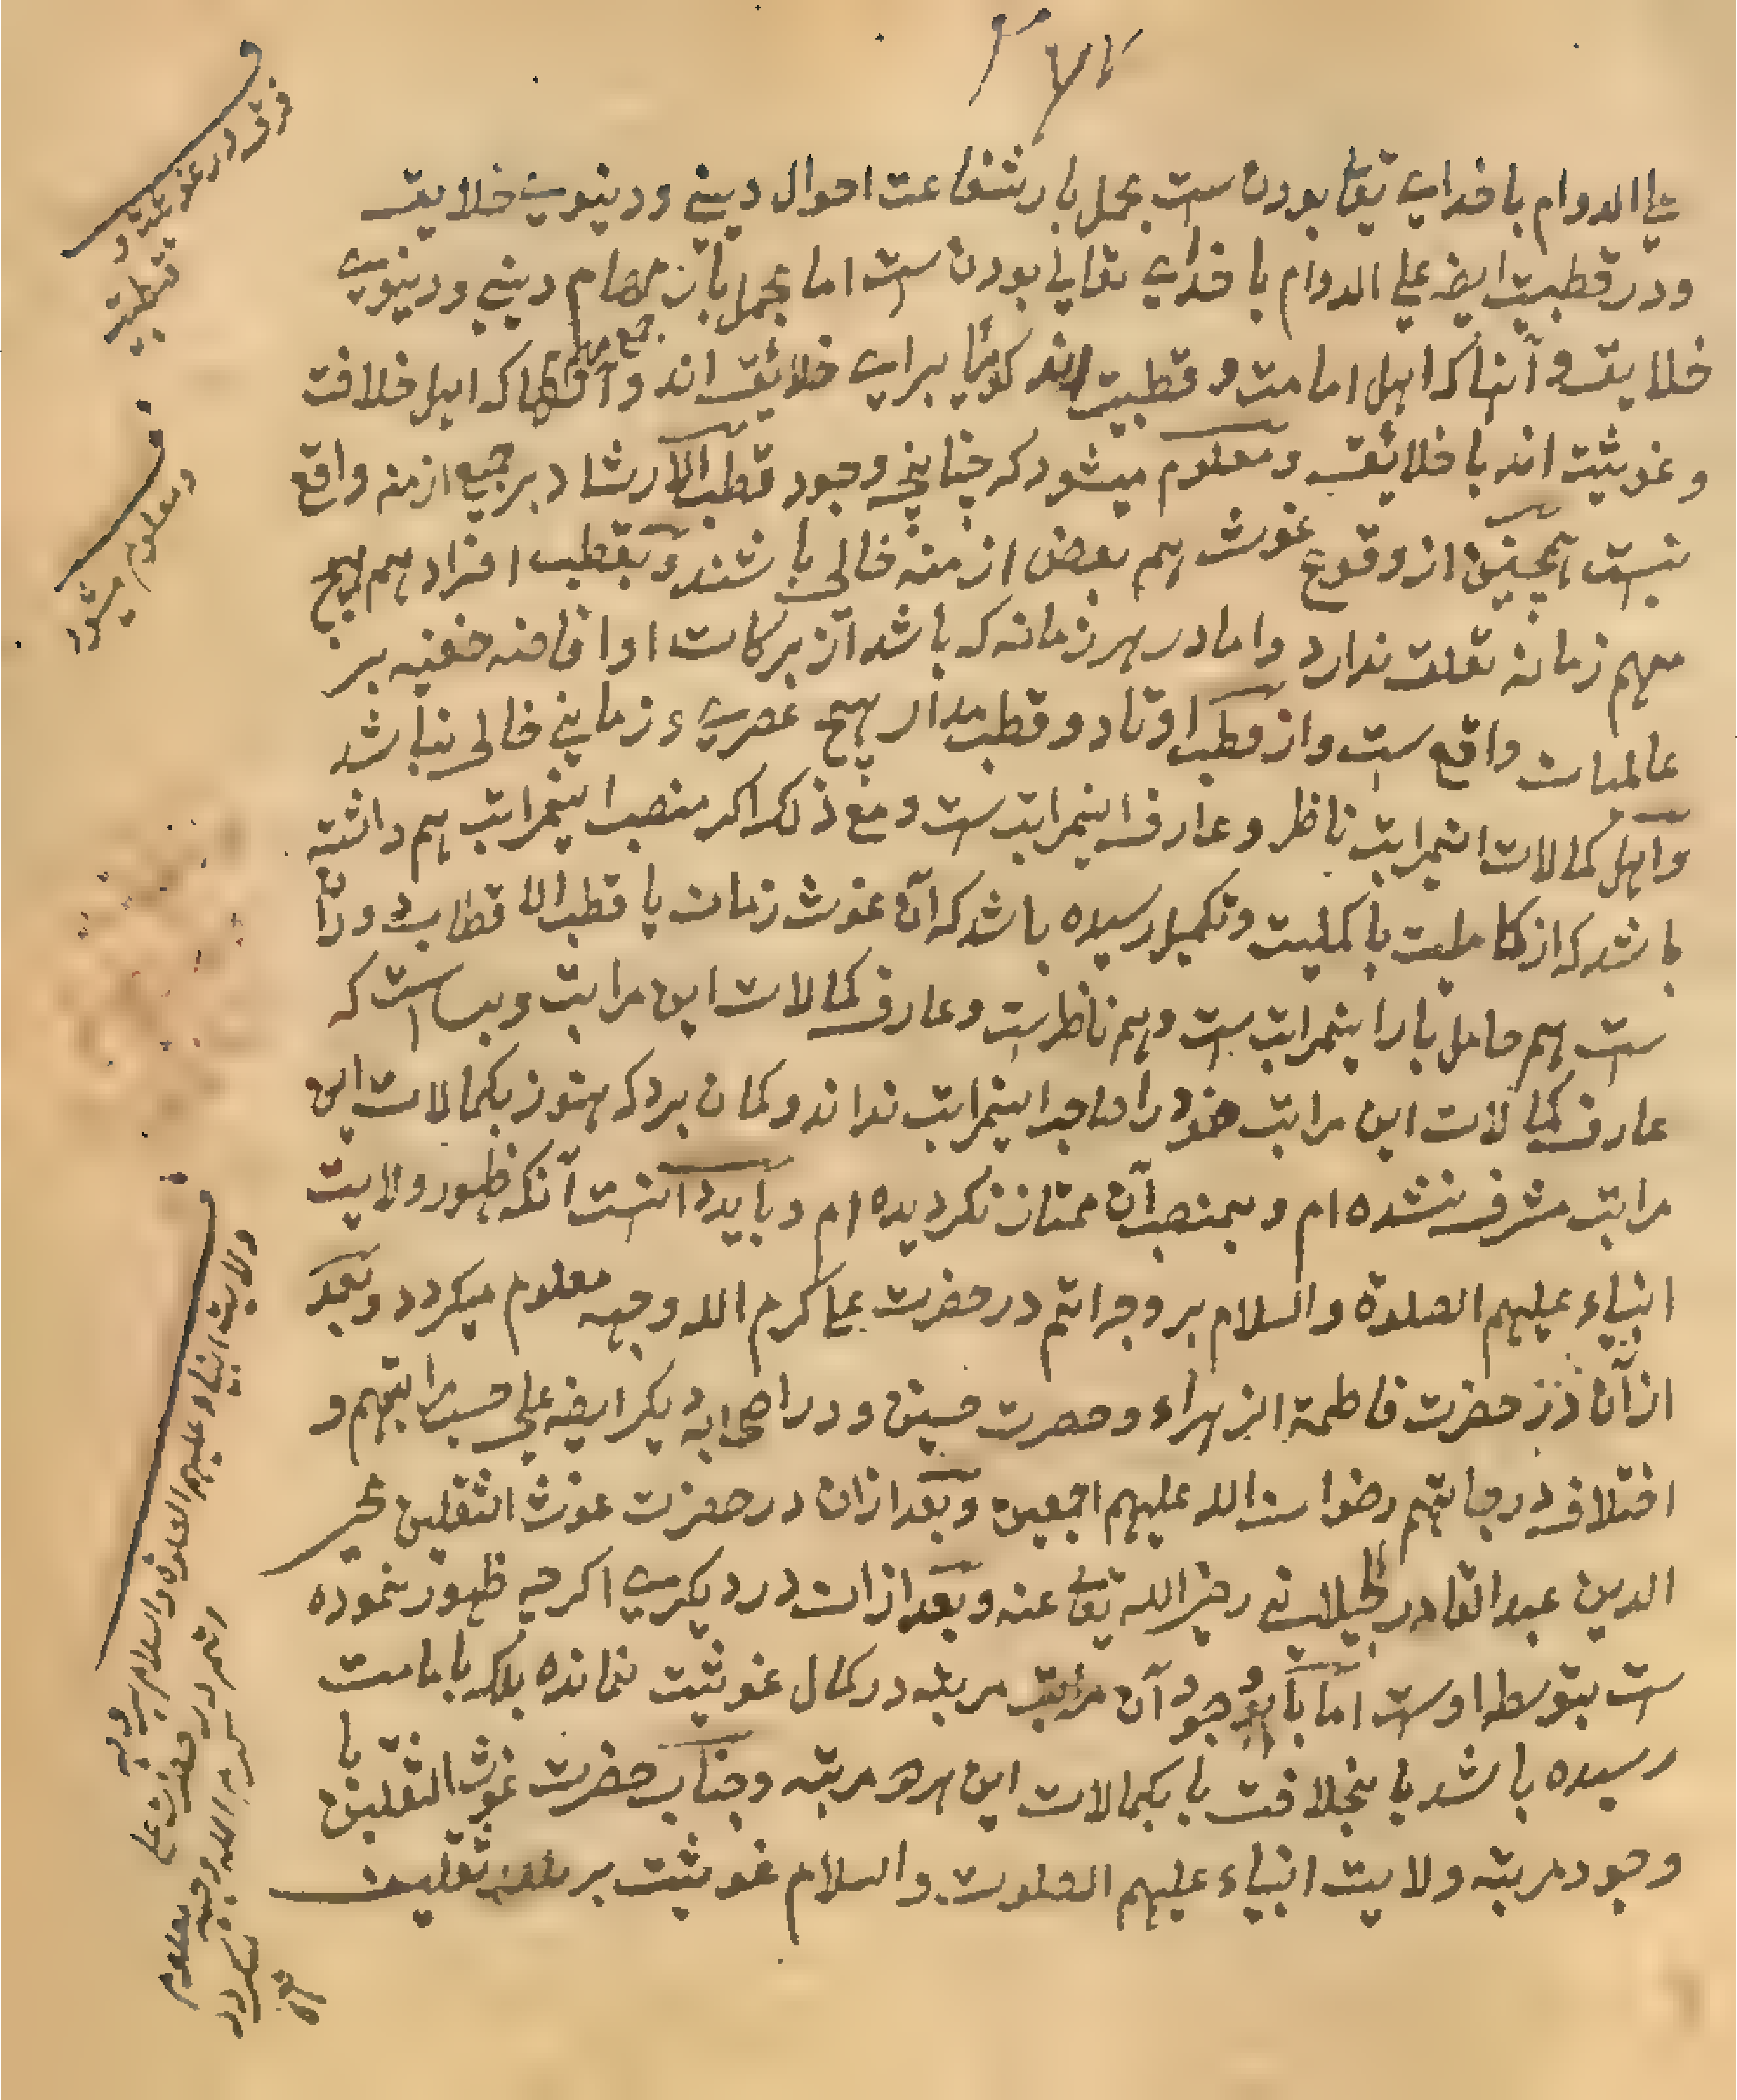 علی الدوام با خدای تعا بودن ست بحمل بار شفاعت احوال دینی و دینوی خلایق
ودر قطبیت ایضه علی الدوام با خدای تعالی بودن ست اما بحمل بار مهام دینی و دینوی
خلایق و آنها که اهل امامت و قطبیت اند کویا برای خلائق اند و آنها که اهل خلافت
و غوثیت اند با خلائق و معلوم میشود که چنانچه وجود قطب الارشاد بر جمیع ازمنه واقع
نیست همچنین از وقوع غوث هم بعض ازمنه خالی باشند و بقطب افراد هم هیچ
مهم زمانه تعلق ندارد و اما در هر زمانه که باشد از برکات او افاضه خفیه بر
عالمیان واقع ست و از قطب اوتاد و قطب مدار هیچ عصری و زمانی خالی نباشد
و اهل کمالات اینمراتب ناظر و عارف اینمراتب ست و مع ذلک اکر منصب اینمراتب هم داشته
باشد که از کاملیت با کملیت و تکمیل رسیده باشد که آن غوث زمان یا قطب الاقطاب دوران
ست هم حامل بار اینمراتب ست و هم ناظرست و عارف کمالات این مراتب و بسا است که
عارف کمالات این مراتب خود را صاحب اینمراتب نداند و کمان برد که هنوز بکمالات این
مراتب مشرف نشده ام و بمنصب آن ممتاز نکردیده ام و باید دانست آنکه ظهور ولایت
انبیاء علیهم الصلوة والسلام بر وجه اتم در حضرت علی کرم الله وجهه معلوم میکردد و بعد
از آن در حضرت فاطمة الزهراء و حضرت حسین و در اصحابه دیکر ایضه علی حسب مراتبهم و
اختلاف درجاتهم رضوان الله علیهم اجمعین و بعد ازان در حضرت غوث الثقلین محی
الدین عبد القادر الجیلانی رضی الله تعا عنه و بعد ازان در دیکری اکرچه ظهور نموده
ست بتوسط اوست اما با وجود آن مراتب مرتبه در کمال غوثیت نمانده بلکه بامامت
رسیده باشد یا بخلافت یا بکمالات این هر دو مرتبه و جناب حضرت غوث الثقلین با
وجود مرتبه ولایت انبیاء علیهم الصلوت والسلام غوثیت بر ثقلین
فرق در غوثیت و
قطبیت
و معلوم میشود
ولایت انبیاء علیهم الصلوة والسلام بر وجه
اتم در حضرت علی
کرم الله وجهه معلوم
میکردد